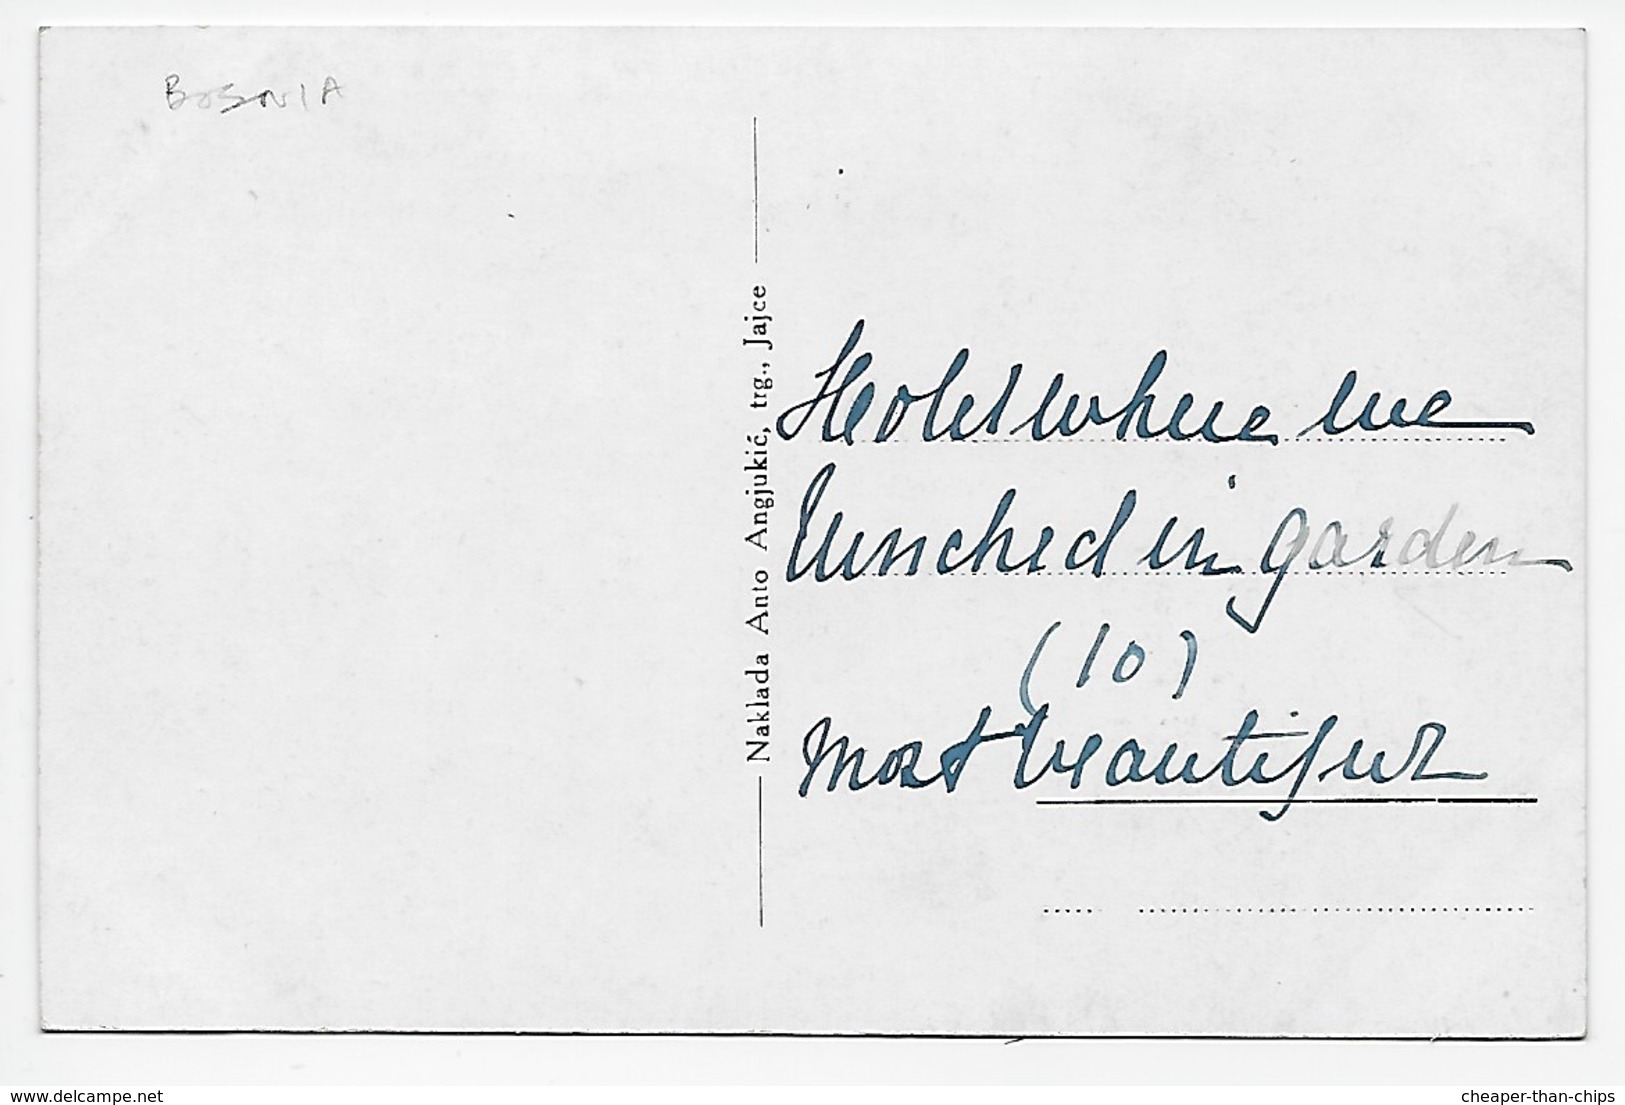 BOSNIA
Nakladа Anto Angjukić, trg., Jajce
Hotel where we
lunched in garden
(10)
most beautiful
www.delcampe.net
cheaper-than-chips